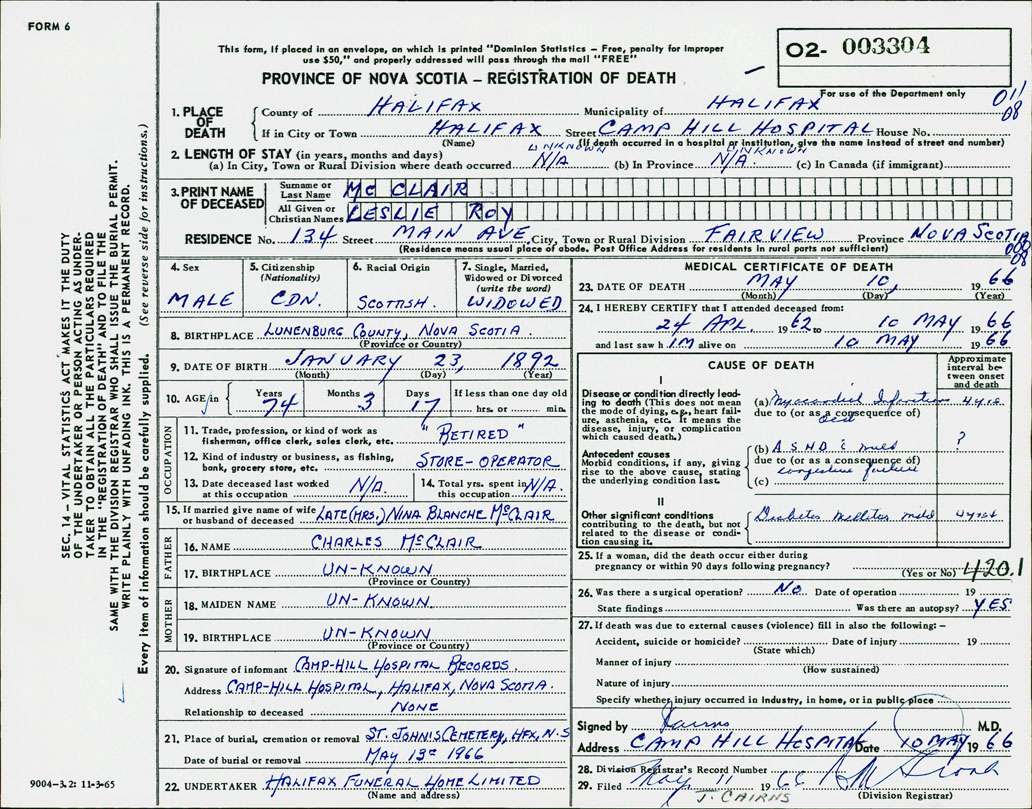 FORM 6
This form, if placed in an envelope, on which is printed "Dominion Statistics – Free, penalty for improper
use $50," and properly addressed will pass through the mail "FREE"
PROVINCE OF NOVA SCOTIA – REGISTRATION OF DEATH
02- 003304
For use of the Department only
011
08
1. PLACE OF DEATH
County of HALIFAX Municipality of HALIFAX
If in City or Town HALIFAX Street CAMP HILL HOSPITAL House No.
(Name) (If death occurred in a hospital or institution, give the name instead of street and number)
2. LENGTH OF STAY (in years, months and days)
UNKNOWN UNKNOWN
(a) In City, Town or Rural Division where death occurred N/A (b) In Province N/A (c) In Canada (if immigrant)
3. PRINT NAME OF DECEASED
Surname or Last Name Mc CLAIR
All Given or Christian Names LESLIE ROY
RESIDENCE No. 134 Street MAIN AVE City, Town or Rural Division FAIRVIEW Province NOVA SCOTIA
(Residence means usual place of abode. Post Office Address for residents in rural parts not sufficient)
08
4. Sex MALE
5. Citizenship (Nationality) CDN.
6. Racial Origin SCOTTISH.
7. Single, Married, Widowed or Divorced (write the word) WIDOWED
8. BIRTHPLACE LUNENBURG COUNTY, NOVA SCOTIA
(Province or Country)
9. DATE OF BIRTH JANUARY 23, 1892
(Month) (Day) (Year)
10. AGE in Years 74 Months 3 Days 17 If less than one day old
hrs. or min.
OCCUPATION
11. Trade, profession, or kind of work as fisherman, office clerk, sales clerk, etc. "RETIRED"
12. Kind of industry or business, as fishing, bank, grocery store, etc. STORE-OPERATOR
13. Date deceased last worked at this occupation N/A. 14. Total yrs. spent in this occupation N/A.
15. If married give name of wife or husband of deceased LATE (MRS.) NINA BLANCHE McCLAIR
FATHER
16. NAME CHARLES McCLAIR
17. BIRTHPLACE UN-KNOWN
(Province or Country)
MOTHER
18. MAIDEN NAME UN-KNOWN.
19. BIRTHPLACE UN-KNOWN
(Province or Country)
20. Signature of informant CAMP-HILL HOSPITAL RECORDS.
Address CAMP-HILL HOSPITAL, HALIFAX, NOVA SCOTIA.
Relationship to deceased NONE
21. Place of burial, cremation or removal ST. JOHN'S CEMETERY, HFX, N.S
Date of burial or removal MAY 13 1966
22. UNDERTAKER HALIFAX FUNERAL HOME LIMITED
(Name and address)
MEDICAL CERTIFICATE OF DEATH
23. DATE OF DEATH MAY 10, 1966
(Month) (Day) (Year)
24. I HEREBY CERTIFY that I attended deceased from:
24 APL. 1962 to 10 MAY 1966
and last saw h IM alive on 10 MAY 1966
CAUSE OF DEATH
Approximate interval between onset and death
I
Disease or condition directly leading to death (This does not mean the mode of dying, e.g., heart failure, asthenia, etc. It means the disease, injury, or complication which caused death.)
(a) Myocardial Infarction 4 yrs
due to (or as a consequence of)
Antecedent causes
Morbid conditions, if any, giving rise to the above cause, stating the underlying condition last.
(b) A.S.H.D. c mild ?
due to (or as a consequence of)
congestive failure
(c)
II
Other significant conditions
contributing to the death, but not related to the disease or condition causing it.
Diabetes mellitus mild
25. If a woman, did the death occur either during
pregnancy or within 90 days following pregnancy?
(Yes or No) 420.1
26. Was there a surgical operation? NO Date of operation 19
State findings Was there an autopsy? YES
27. If death was due to external causes (violence) fill in also the following: –
Accident, suicide or homicide? Date of injury 19
(State which)
Manner of injury
(How sustained)
Nature of injury
Specify whether injury occurred in industry, in home, or in public place
Signed by J Cairns M.D.
Address CAMP HILL HOSPITAL Date 10 MAY 1966
28. Division Registrar's Record Number
29. Filed May 11 1966
J. CAIRNS (Division Registrar)
SEC. 14 – VITAL STATISTICS ACT MAKES IT THE DUTY
OF THE UNDERTAKER OR PERSON ACTING AS UNDER-
TAKER TO OBTAIN ALL THE PARTICULARS REQUIRED
IN THE "REGISTRATION OF DEATH" AND TO FILE THE
SAME WITH THE DIVISION REGISTRAR WHO SHALL ISSUE THE BURIAL PERMIT.
WRITE PLAINLY WITH UNFADING INK. THIS IS A PERMANENT RECORD.
Every item of information should be carefully supplied. (See reverse side for instructions.)
9004-3.2: 11-3-65